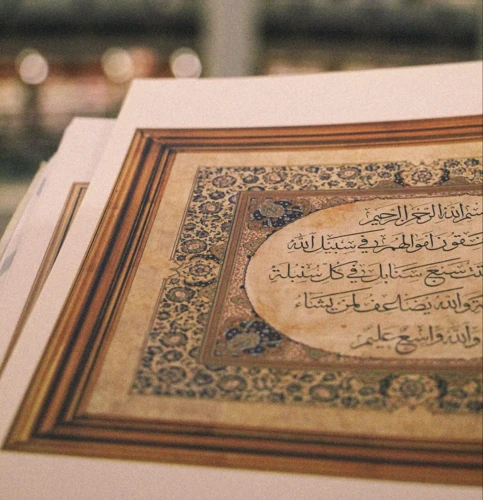 بسم الله الرحمن الرحيم
ينفقون أموالهم في سبيل الله
أنبتت سبع سنابل في كل سنبلة
والله يضاعف لمن يشاء
والله واسع عليم